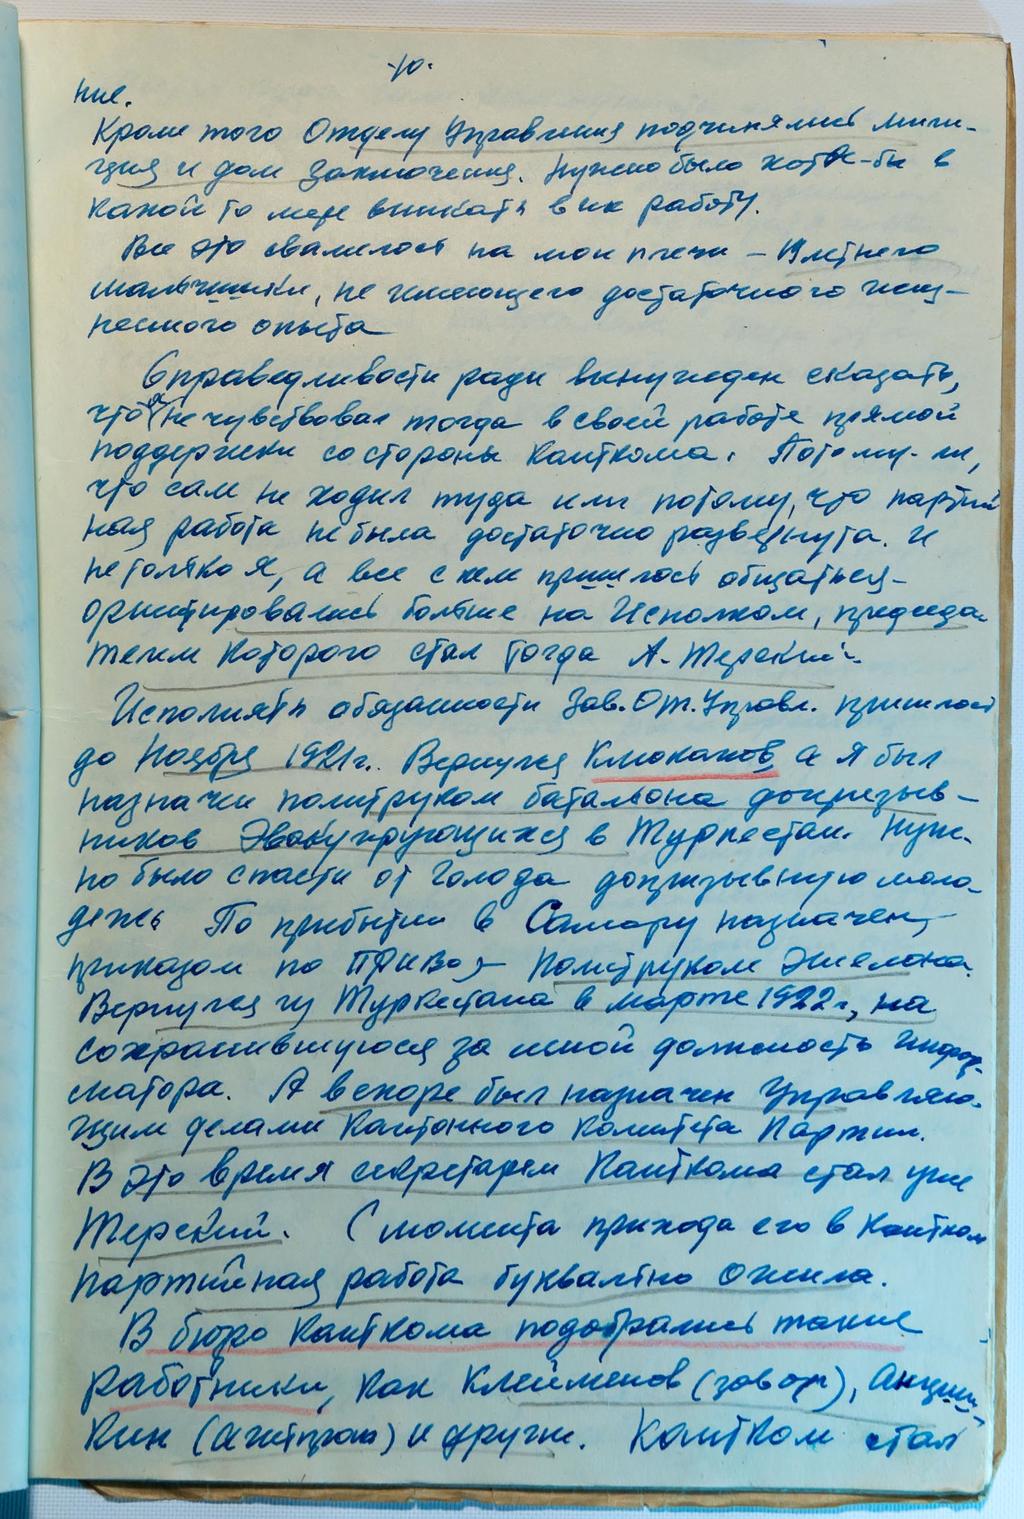 -10-
ние.
Кроме того Отделу Управления подчинялись мили-
ция и дом заключения. Нужно было хотя-бы в
какой то мере вникать в их работу.
Все это свалилось на мои плечи – 19 летнего
мальчишки, не имеющего достаточного жиз-
ненного опыта
Справедливости ради вынужден сказать,
что я не чувствовал тогда в своей работе прямой
поддержки со стороны Канткома. Потому-ли,
что сам не ходил туда или потому, что партий
ная работа не была достаточно развернута. И
не только я, а все с кем пришлось общаться –
ориентировались больше на Исполком, председа
телем которого стал тогда А. Терский.
Исполнять обязанности Зав. От. Управл. пришлось
до Ноября 1921 г. Вернулся Клюканов, а я был
назначен политруком батальона допризыв-
ников Эвакуирующихся в Туркестан. Нуж-
но было спасти от голода допризывную моло-
дежь По прибытии в Самару назначен,
приказом по ПриВо – Политруком Эшелона.
Вернулся из Туркестана в марте 1922 г., на
сохранившуюся за мной должность инфор-
матора. А вскоре был назначен Управляю-
щим делами Кантонного Комитета Партии.
В это время секретарем Канткома стал уже
Терский. С момента прихода его в Кантком
партийная работа буквально ожила.
В бюро Канткома подобрались такие
работники, как Клейменов (заворг),
кин (агитпроп) и другие. Кантком стал